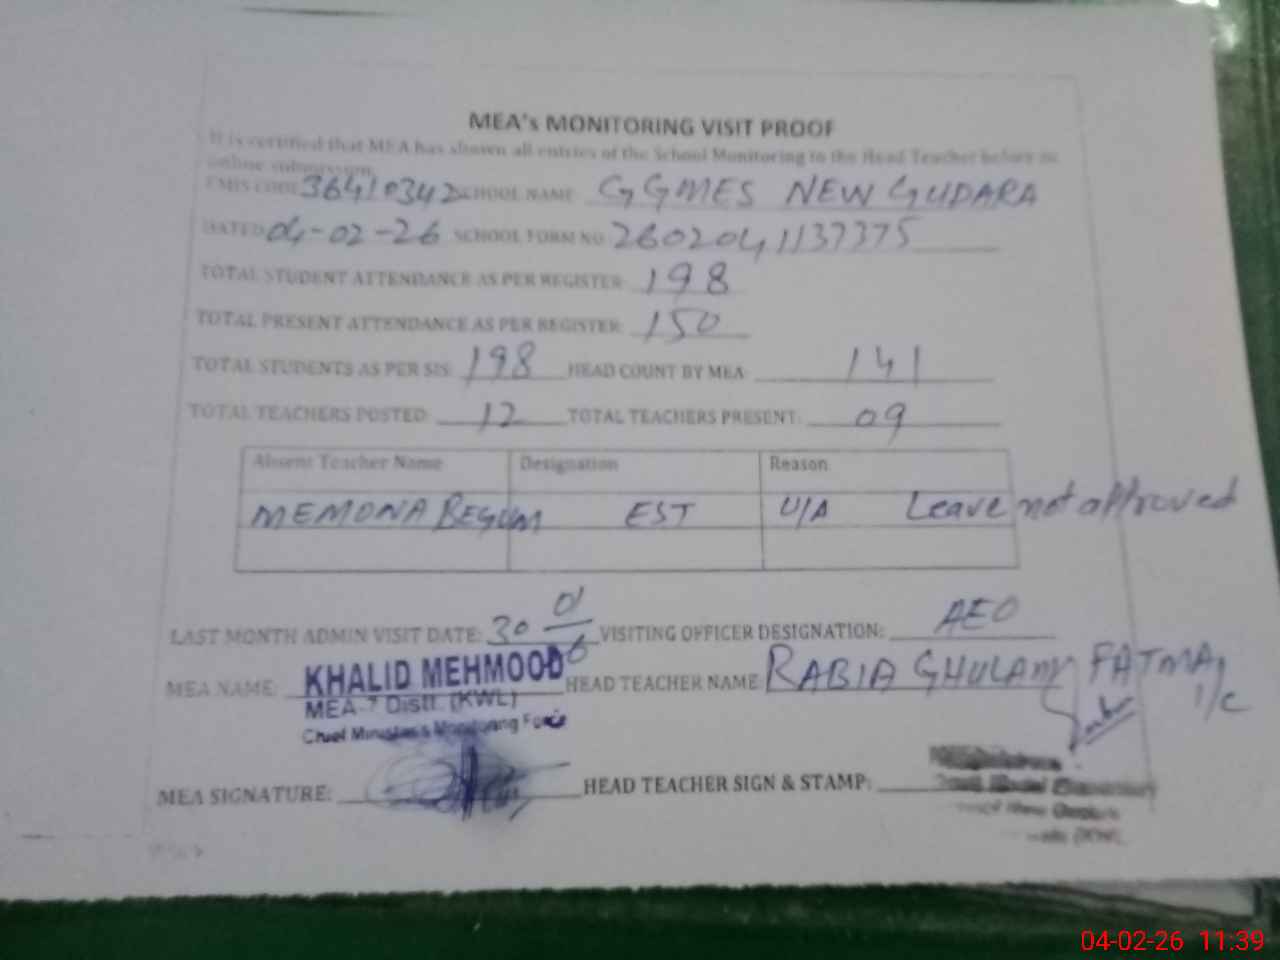 MEA's MONITORING VISIT PROOF
It is certified that MEA has shown all entries of the School Monitoring to the Head Teacher before an
online submission.
EMIS CODE 36410342 SCHOOL NAME GGMES NEW GUDARA
DATED 04-02-26 SCHOOL FORM NO 2602041137375
TOTAL STUDENT ATTENDANCE AS PER REGISTER 198
TOTAL PRESENT ATTENDANCE AS PER REGISTER: 150
TOTAL STUDENTS AS PER SIS 198 HEAD COUNT BY MEA 141
TOTAL TEACHERS POSTED 12 TOTAL TEACHERS PRESENT: 09
Absent Teacher Name Designation Reason
MEMONA BEGUM EST U/A Leave not approved
LAST MONTH ADMIN VISIT DATE: 30 01 VISITING OFFICER DESIGNATION: AEO
MEA NAME: KHALID MEHMOOD HEAD TEACHER NAME RABIA GHULAM FATMA, I/C
MEA-7 Distt. (KWL)
Chief Minister's Monitoring Force
MEA SIGNATURE: HEAD TEACHER SIGN & STAMP:
04-02-26 11:39